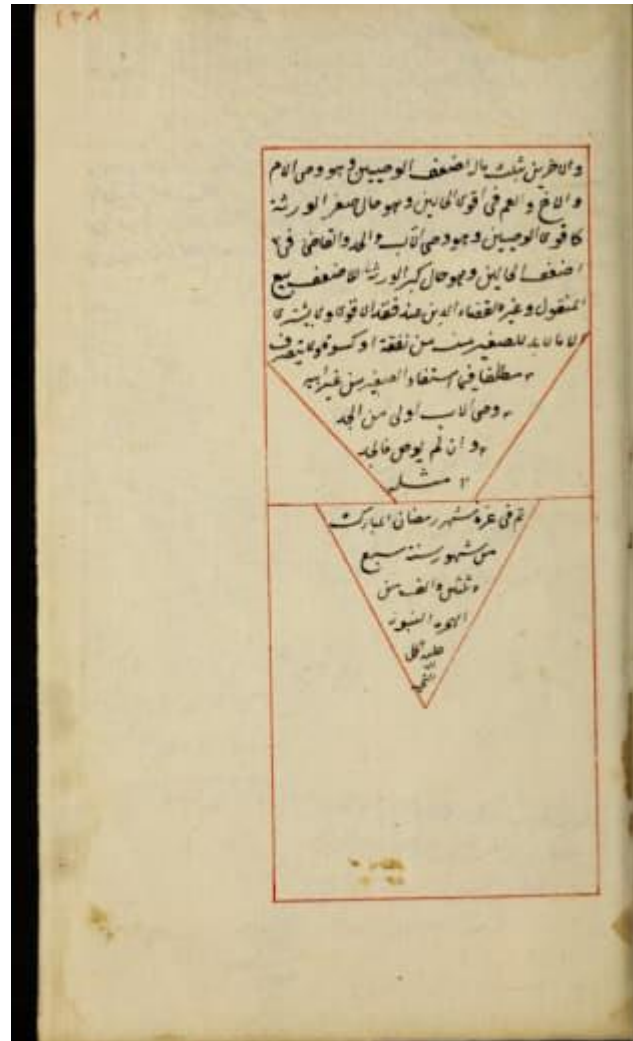 ٤٣٨
والاخرين بثلث ماله اضعف الوصيين وهو وصى الام
والاخ والعم فى اقوى الحالين وهو حال صغر الورثة
كاقوى الوصيين وهو وصى الاب والجد والقاضى فى
اضعف الحالين وهو حال كبر الورثة للاضعف بيع
المنقول وغيره لقضاء الدين عند فقد الاقوى ولا يشترى
الا ما لا بد للصغير منه من نفقة او كسوة ولا يتصرف
مطلقا فيما استفاد الصغير من غير ابيه
وصى الاب اولى من الجد
وان لم يوص فالجد
مثله
تم فى غرة شهر رمضان المبارك
من شهور سنة سبع
وثلثين والف من
الهجرة النبوية
عليه